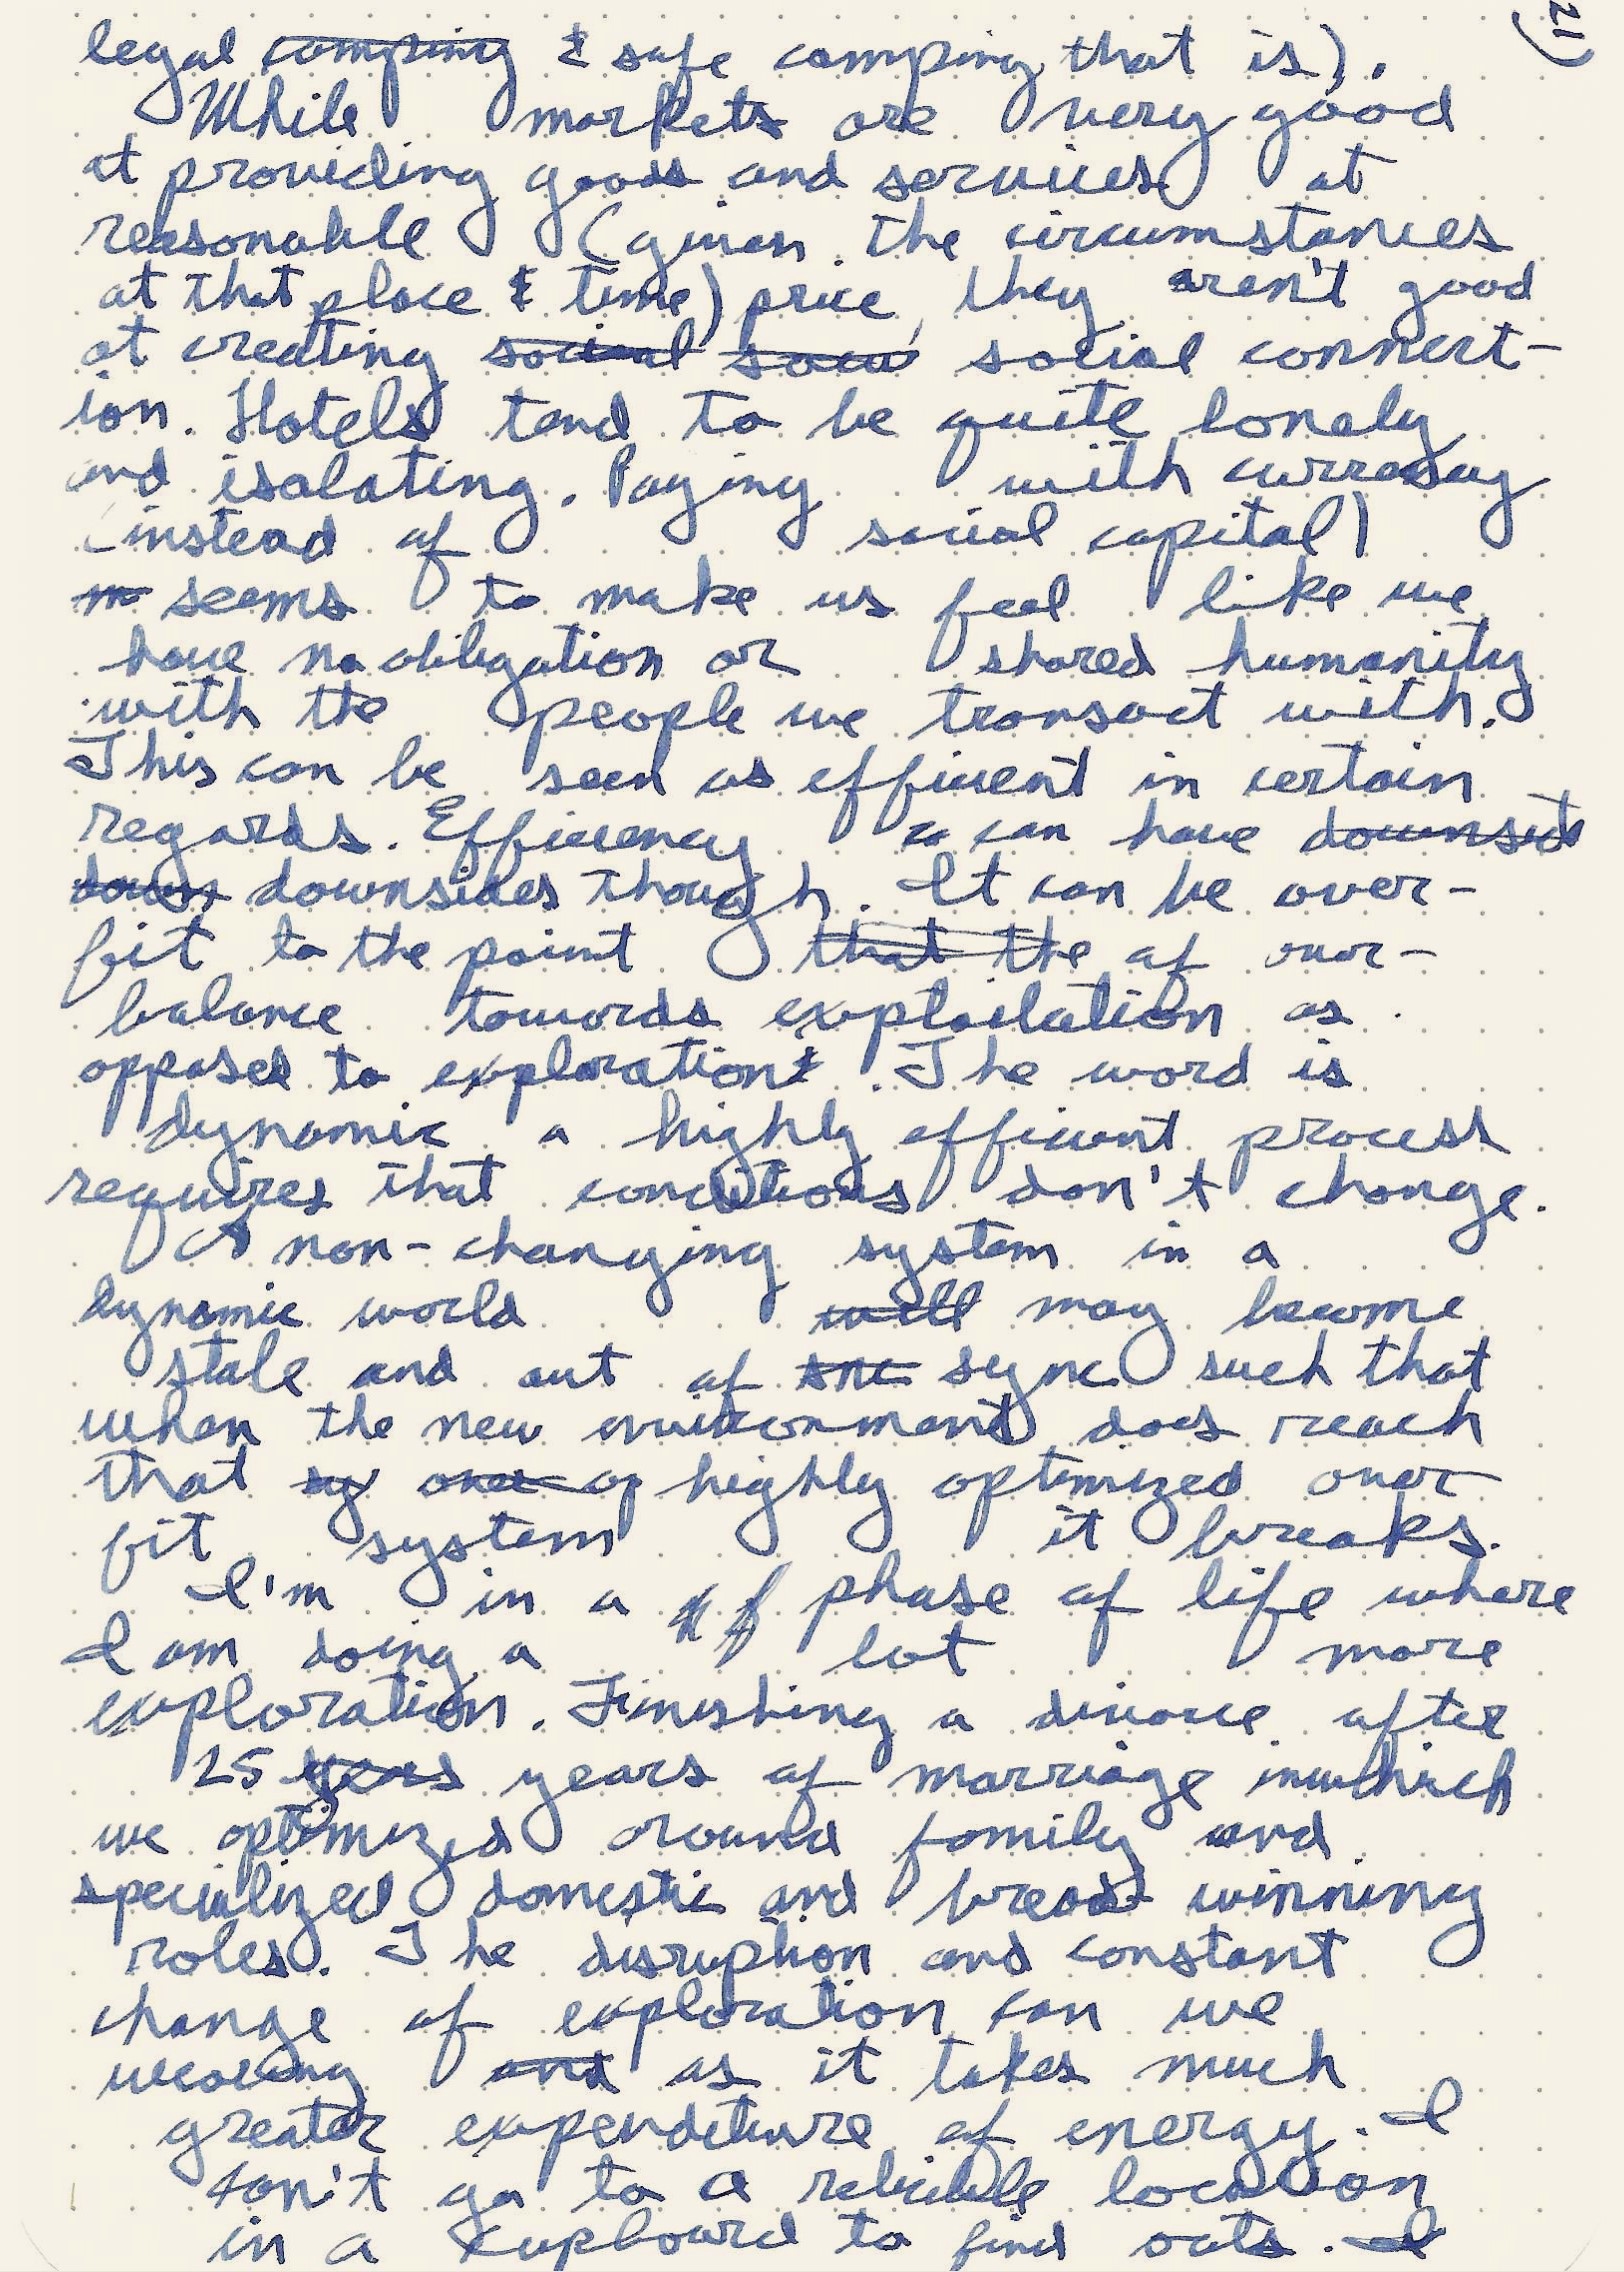 21)
legal camping & safe camping that is).
While markets are very good
at providing goods and services at
reasonable (given the circumstances
at that place & time) price, they aren't good
at creating socieal socia social connect-
ion. Hotels tend to be quite lonely
and isolating. Paying with currency
(instead of social capital)
m seems to make us feel like we
have no obligation or shared humanity
with the people we transact with.
This can be seen as efficent in certain
regards. Efficiency can have downsid
down downsides though. It can be over-
fit to the point that the of over-
balance towards exploitation as
opposed to exploration. The word is
dynamic a highly efficient process
requires that conditions don't change.
A non-changing system in a
dynamic world will may become
stale and out of snc sync such that
when the new environment does reach
that sy over op highly optimized over
fit system it breaks.
I'm in a phase of life where
I am doing a lot more
exploration. Finishing a divorce after
25 years years of marriage in which
we optimized around family and
specialized domestic and bread winning
roles. The disruption and constant
change of exploration can we
wearing and as it takes much
greater expenditure of energy. I
don't go to a reliable location
in a cupboard to find oats. I